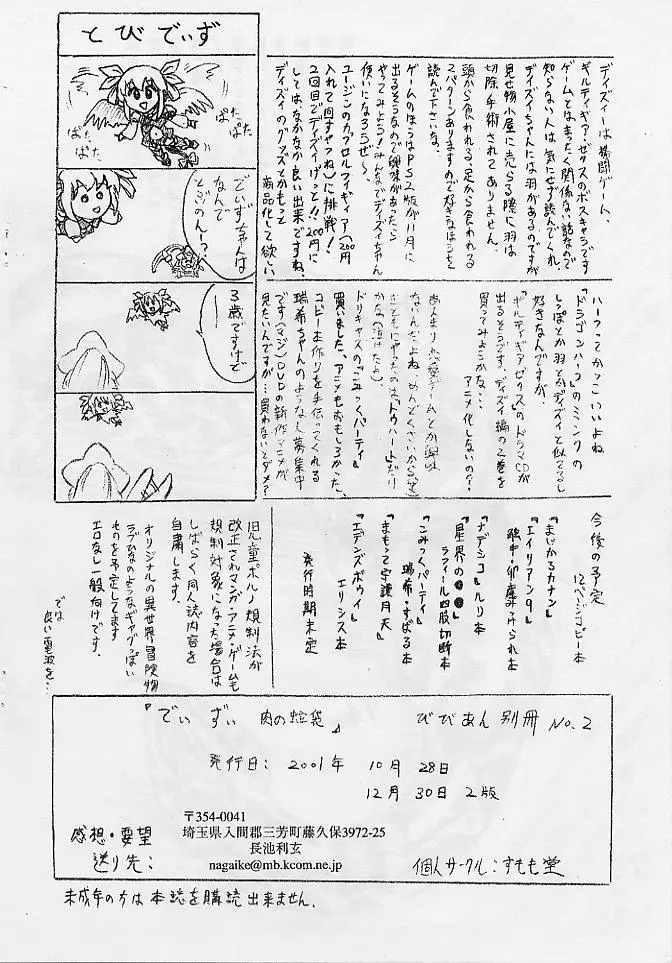 とびでぃず
ぱた
ぱた
ぱた
ぱた
でぃずちゃんは
なんで
とぶのん！？
3歳ですけど
ディズィーは格闘ゲーム、
ギルティギア・ゼクスのボスキャラです
ゲームとはまったく関係ない話なので
知らない人は気にせず読んでくれ、
ディズィちゃんには羽があるのですが
見せ物小屋に売らる際に羽は
切除手術されてありません、
頭から食われる、足から食われる
2パターンありますので好きなほうを
読んで下さいな、
ゲームのほうはPS2版が11月に
出るそうなので興味があったら
やってみよう！みんなでディズィちゃん
使いになろうぜ〜、
ユージンのカプセルフィギュア(200円
入れて回すやつね)に挑戦！
2回目でディズィげっと!!200円に
してはなかなか良い出来ですね、
ディズィのグッズとかもって
商品化して欲しい、
ハーフってかっこいいよね
『ドラゴンハーフ』のミンクの
しっぽとか羽とかディズィと似てるし
好きなんですが、
『ギルティギアゼクス』のドラマCDが
出るそうです、ディズィ編の2巻を
買ってみようかな・・・
アニメ化しないの？？
あんまり恋愛ゲームとか興味
ないんだよね、めんどくさいから(笑)
まともにやったのはトゥハートだけ
かな(泣けたよ)、
ドリキャスの『こみっくパーティ』
買いました、アニメもおもしろかった、
コピー本作りを手伝ってくれる
瑞希ちゃんのような人募集中
です(マジ)DVDの新作アニメが
見たいんですが…買わないとダメ？
今後の予定
12ページコピー本
『まじかるカナン』
『エイリアン9』
触中・卵産みつけられ本
『ナデシコ』ルリ本
『星界の●●』
ラフィール四肢切断本
『こみっくパーティ』
瑞希・すばる本
『まもって守護月天』
『エデンズボゥイ』
エリシス本
発行時期未定
児童ポルノ規制法が
改正されマンガ・アニメ・ゲームも
規制対象になった場合は
しばらく同人誌内容を
自粛します、
オリジナルの異世界冒険物
ラブひなのようなギャグっぽい
ものを予定してます
エロなし一般向けです、
では
良い電波を…
『でぃずぃ 肉の 袋』 びびあん別冊 No.2
発行日： 2001年 10月 28日
12月 30日 2版
〒354-0041
埼玉県入間郡三芳町藤久保3972-25
長池利玄
nagaike@mb.kcom.ne.jp
感想・要望
送り先：
個人サークル：すもも堂
未成年の方は本誌を購読出来ません、